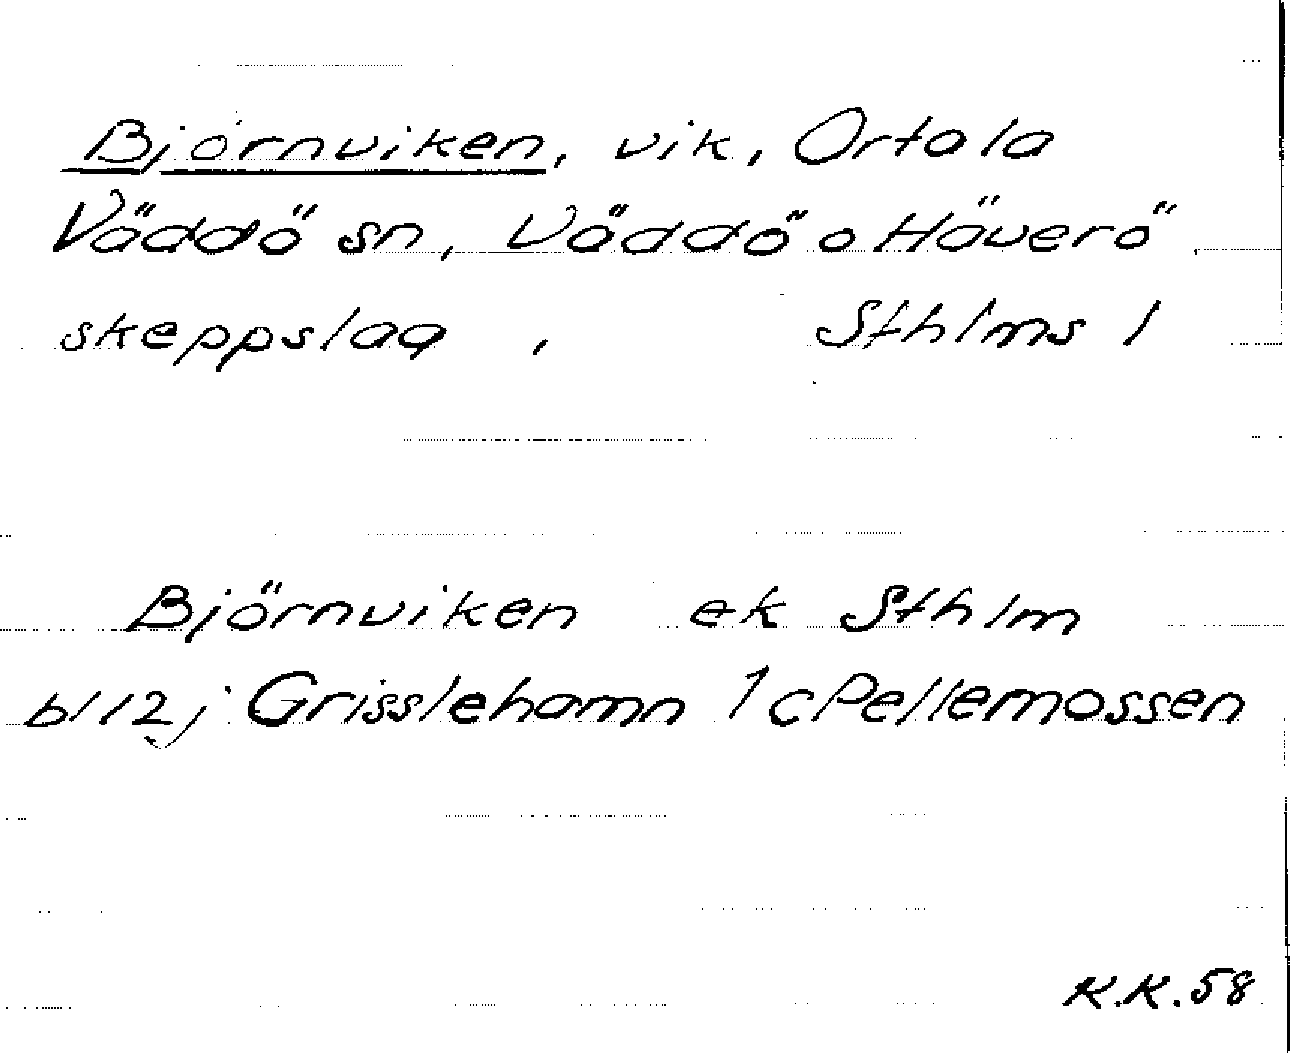 Björnviken, vik, Ortala
Väddö sn, Väddö o Häverö
skeppslag, Sthlms l
Björnviken ek Sthlm
bl 12j Grisslehamn 1c Pellemossen
K.K. 58